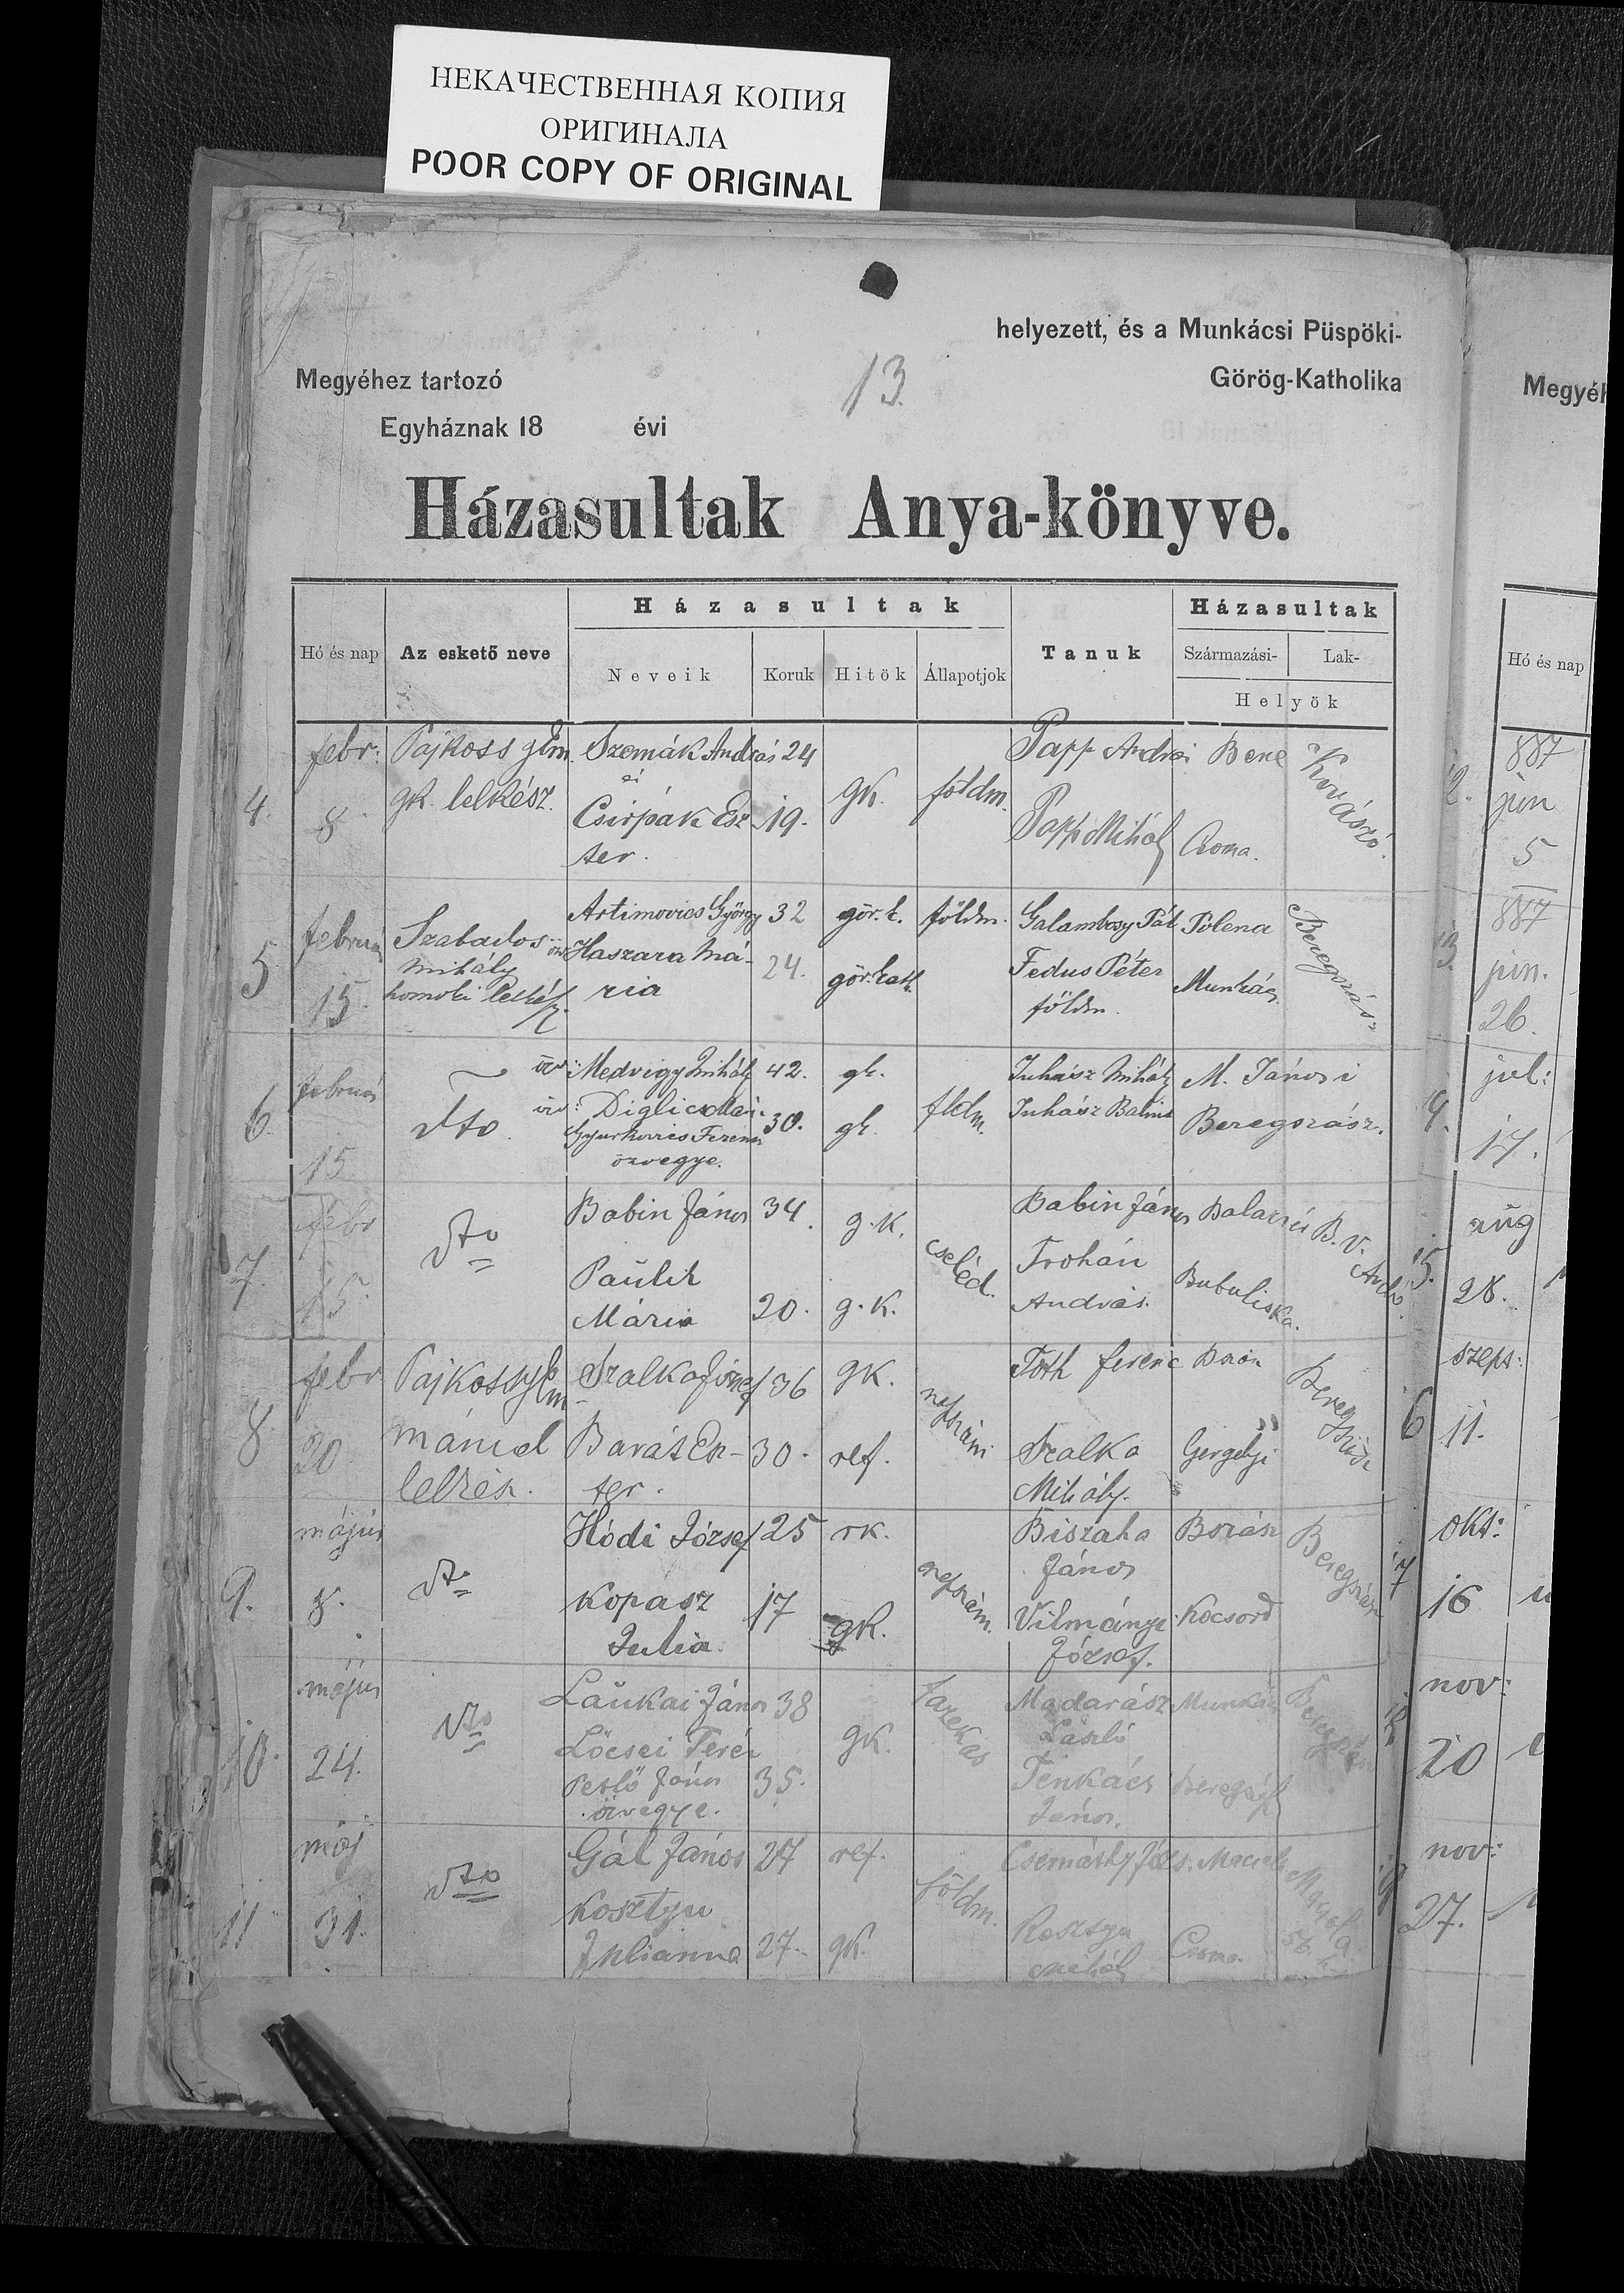 НЕКАЧЕСТВЕННАЯ КОПИЯ
ОРИГИНАЛА
POOR COPY OF ORIGINAL
helyezett, és a Munkácsi Püspöki-
Megyéhez tartozó 13. Görög-Katholika
Egyháznak 18 évi
Házasultak Anya-könyve.
Hó és nap Az eskető neve Házasultak Tanuk Házasultak
Neveik Koruk Hitök Állapotjok Származási- Lak-
Helyök
4. febr: 8 Pajkoss
gk. lelkész.
Szemák András 24
és
Csirpák Esz- 19.
ter.
gk. földm.
Papp Andrási Bene
Papp Mihály Csoma.
Kovászó.
5 február 15.
Szabados
Mihály
homoki lelkész
Artimovics György 32 gör. k. földm.
özv Haszara Má- 24. gör. kath.
ria
Galambosy Pál Polena
Fedus Péter Munkács
földm.
Beregszász
6. február 15
dto.
özv: Medvigy Mihály 42. gk.
özv: Diglics Mari 30. gk. fldm.
Gyurkovics Ferencz
özvegye.
Juhász Mihály M. Jánosi
Juhász Balint Beregszász.
7. febr 15.
dto
Babin János 34. g.k.
Paulik
Mária 20. g.k.
cseléd.
Babin János
Trohán
András. Bubuliska.
B. V. Ardó.
8 febr 20
Pajkossy Em-
mánuel
lelkész.
Szalka József 36 gk.
Barát Esz- 30. ref.
ter.
napszám
Tóth ferenc
Szalka Gergelyi
Mihály.
Beregszász
9. május 8.
dto
Hódi József 25 rk.
Kopasz 17 gk.
Julia.
napszám.
Biszaha
János
Vilmányi Kocsord
József.
Beregszász
10. május 24.
dto
Laukai János 38
Lőcsei Teréz gk.
Petlő János 35.
özvegye.
fazekas
Madarász Munkács
László
Tenkács Beregszász
János.
Beregszász
11 máj 31.
dto
Gál János 27 ref.
Kosztyu
Julianna 27. gk.
földm.
Kosztyu Csoma.
Mihály
Megyéh
Hó és nap
12. 887
jun
5
13. 887
jun.
26.
jul:
17.
15. aug
28.
6 szept:
11.
17 okt:
16
nov:
20
nov:
27.